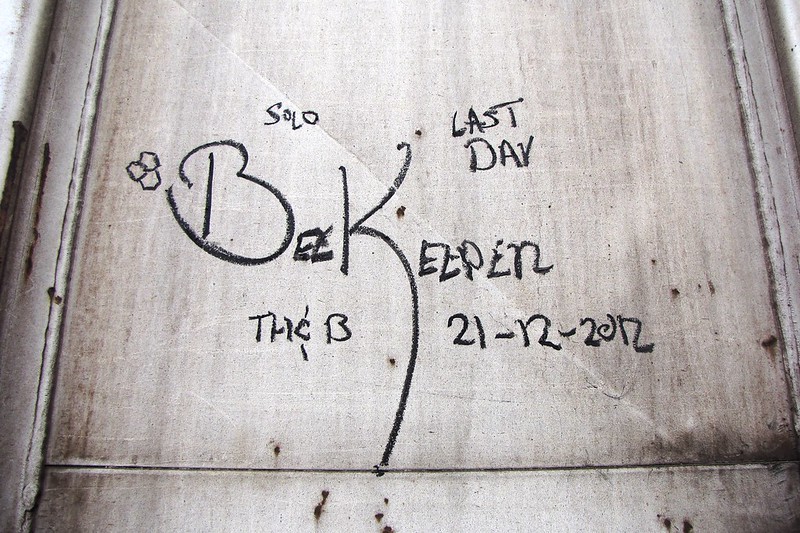 SOLO
LAST
DAY
BEEKEEPER
THE B
21-12-2012